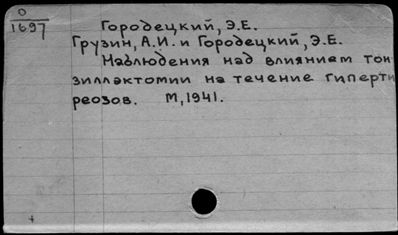 О
1697
Городецкий, Э.Е.
Грузин, А.И. и Городецкий, Э.Е.
Наблюдения над влиянием тон
зиллэктомии на течение гиперти
реозов. М, 1941.